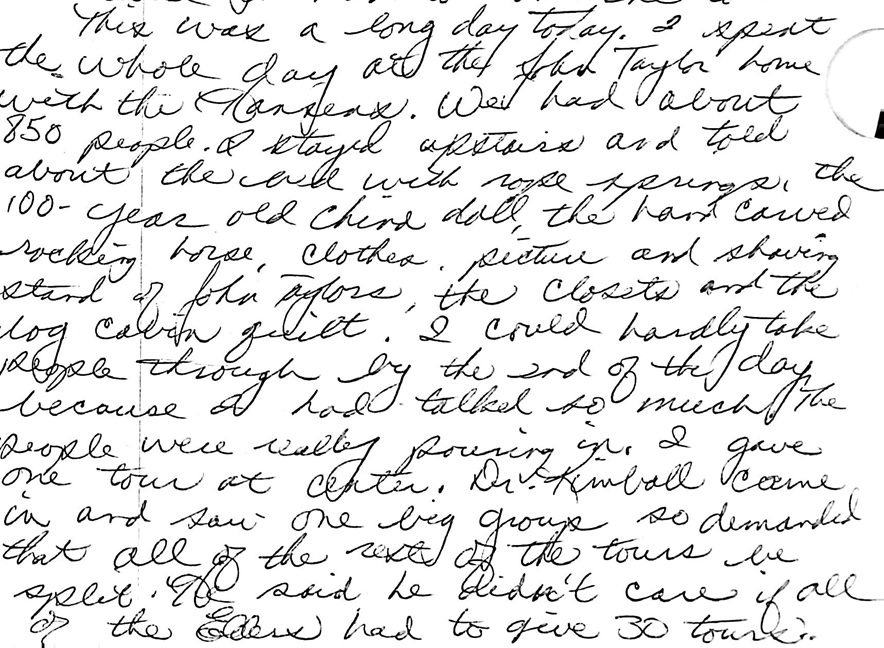 This was a long day today. I spent
the whole day at the John Taylor home
with the Hansens. We had about
850 people. I stayed upstairs and told
about the bed with rope springs, the
100-year old china doll, the hand carved
rocking horse, clothes, picture and shaving
stand of John Taylors, the closets and the
log cabin quilt. I could hardly take
people through by the end of the day
because I had talked so much. The
people were really pouring in. I gave
one tour at center. Dr. Kimball came
in and saw one big group so demanded
that all of the rest of the tours be
split. He said he didn't care if all
of the Elders had to give 30 tours.